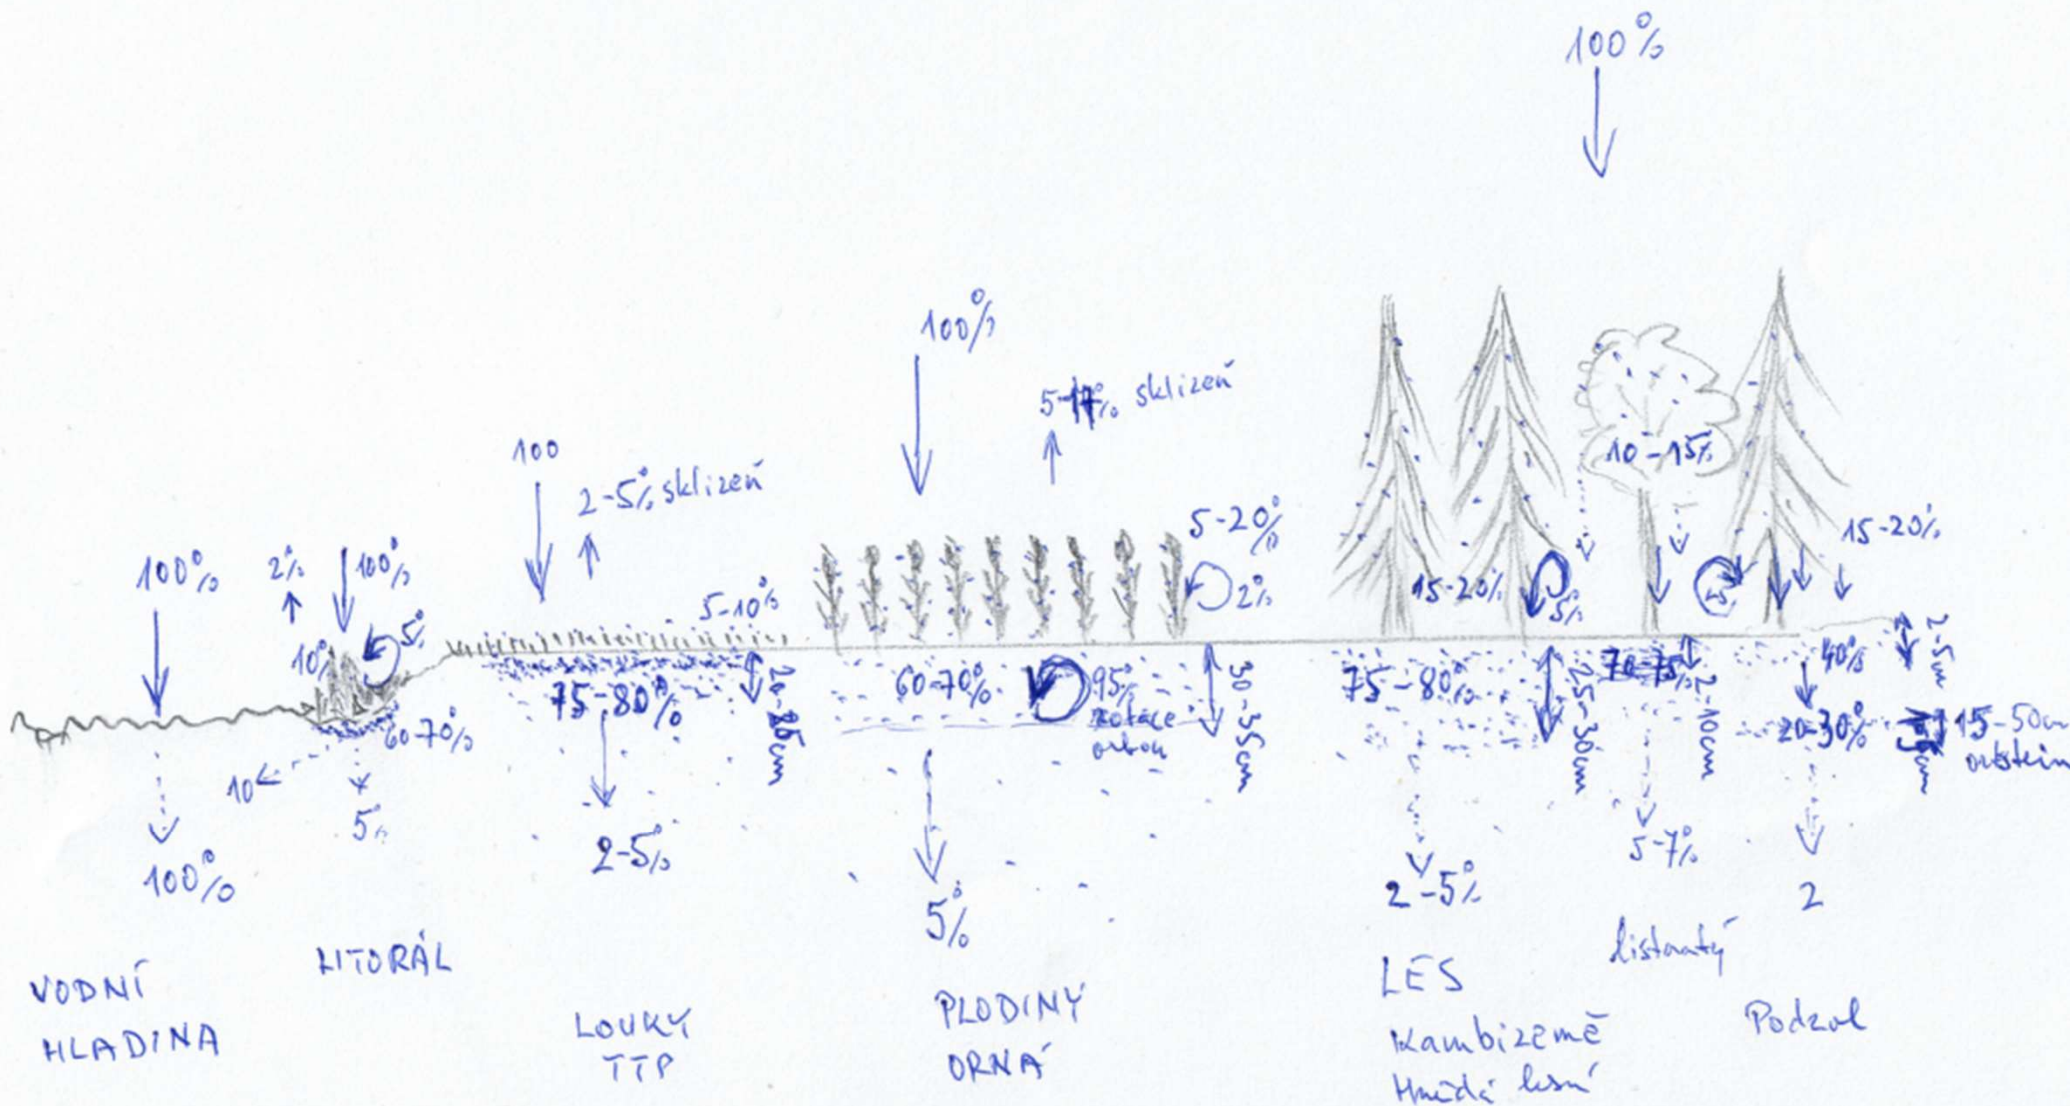 100%
100%
5-17% sklizeň
100
2-5% sklizeň
10-15%
5-20%
2%
15-20%
100%
2%
100%
5%
10%
5-10%
15-20%
5%
60-70%
75-80%
20-25cm
60-70%
95%
rotace
orbou
30-35cm
75-80%
25-30cm
70-75%
2-10cm
40%
2-5cm
20-30%
15-50cm
ortstein
10
5%
100%
2-5%
5%
2-5%
5-7%
2
VODNÍ
HLADINA
LITORÁL
LOUKY
TTP
PLODINY
ORNÁ
LES
Kambizemě
Hnědá lesní
listnatý
Podzol